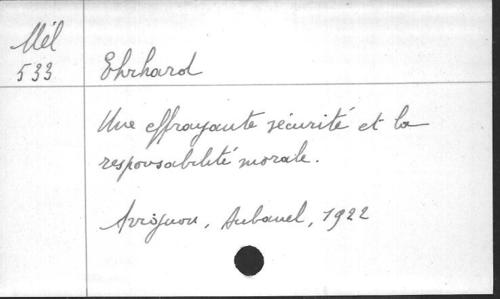 Mél
533
Ehrhard
Une effrayante sécurité et la
responsabilité morale.
Avignon, Aubanel, 1922